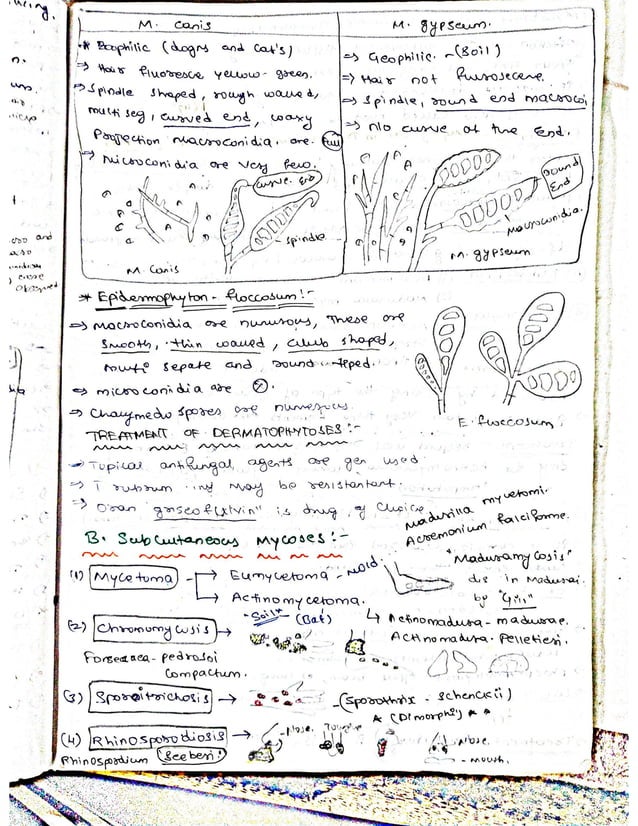 M. canis
* Zoophilic (dogs and cat's)
→ Hair fluoresce yellow-green.
→ Spindle shaped, rough walled,
multi seg, curved end, waxy
Projection macroconidia. are.
→ Microconidia are very few.
curve. End
spindle
M. Canis
M. gypseum.
⇒ Geophilic. - (Soil)
⇒ Hair not flurosecene.
⇒ Spindle, round end macroco
⇒ No curve at the End.
round End
Macroconidia.
M. gypseum
* Epidermophyton - floccosum!-
⇒ Macroconidia are numurous, These are
Smooth, thin walled, club shaped,
sepate and round
⇒ microconidia are ⊗.
⇒ Chalymedo spores are numerous
E. floccosum.
TREATMENT OF DERMATOPHYTOSES:-
→ Tupical antifungal agents are gen used
→ T rubrum may be resistantant.
⇒ Oral is drug of choice
Madurilla mycetomi.
Acremonium falciforme.
B. Subcutaneous Mycoses!-
"Maduramycosis"
dis in Madurai.
by "Gill"
(1) Mycetoma → Eumycetoma - Mold.
→ Actinomycetoma.
↳ Actinomadura - madurae.
Actinomadura - Pelletieri.
(2) Chromomycosis → - Soil* - (Bat)
Fonsecaea - pedrosoi
compactum.
(3) Sporoitrichosis → - (Sporothrix - Schenckii)
* (Dimorphs) * *
(4) Rhinosporodiosis → - Nose. Tongue - Nose.
Rhinospordium Seeberi - mouth.